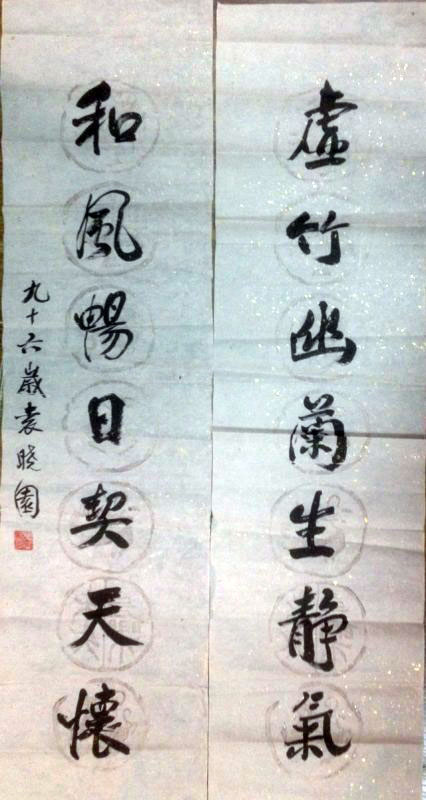 虚竹幽蘭生靜氣
和風暢日契天懷
九十六歲袁晓園